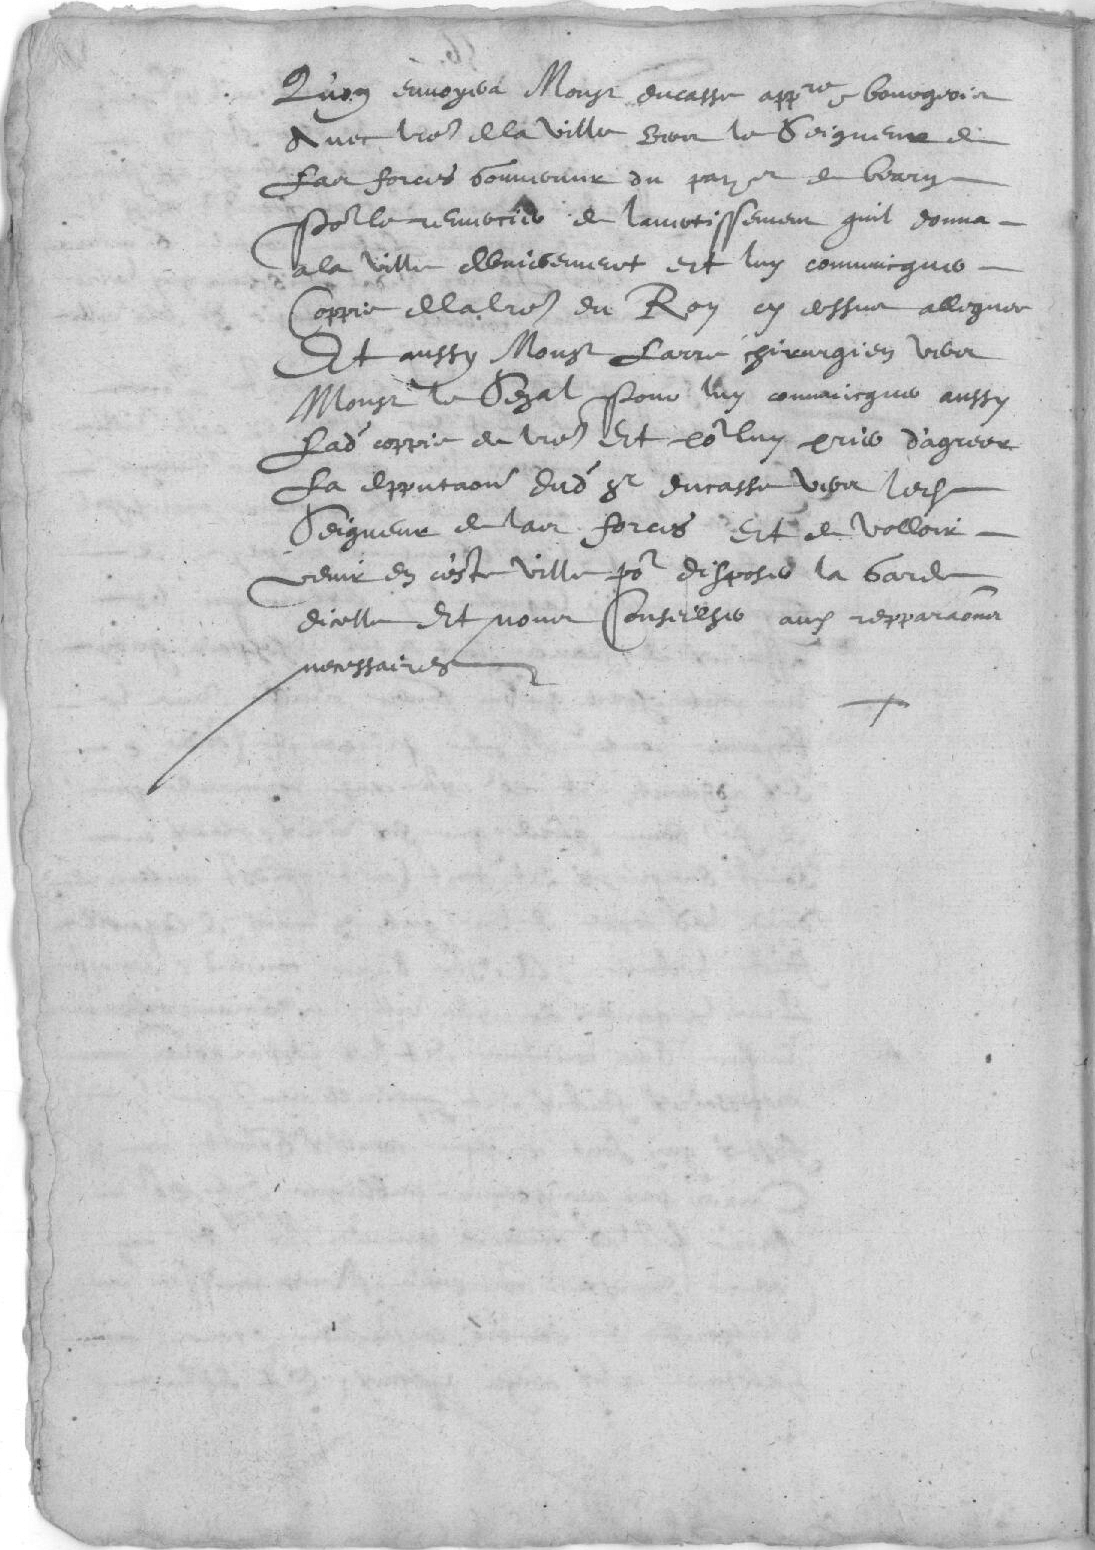 Quon envoyera Monsr ducasse appre bourgeois
Avec lres de la ville vers le Seigneur de
Las forces Gouverneur du pays de bearn
Por le remercier de lavertissement quil donna
a la ville et luy comunicquer
Coppie de la lre du Roy cy dessus alleguee
Et aussy Monsr Larre chirurgien vers
Monsr le Senal Pour luy comunicquer aussy
Lade coppie de lres Et por luy prier dagreer
La depputaon dud sr ducasse vers led
Seigneur de las forces Et de volloir
venir en ceste ville por disposer la Garde
dicelle Et nous Conseilher aux repparaons
necessaires